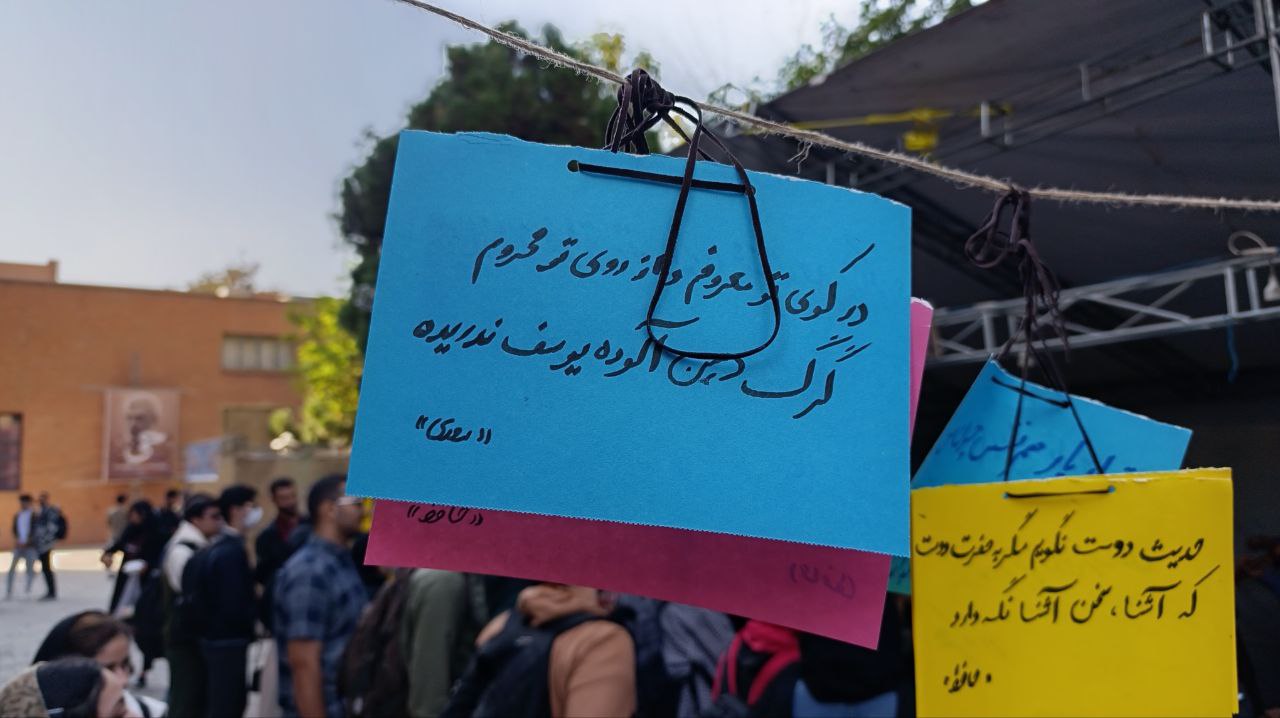 در کوی تو معروفم و از روی تو محروم
گرگ دهن آلوده یوسف ندریده
«سعدی»
«حافظ»
حدیث دوست نگویم مگر به حضرت دوست
که آشنا، سخن آشنا نگه دارد
«حافظ»